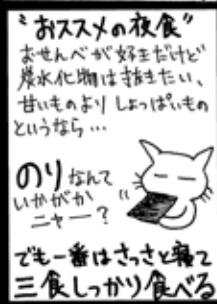 "おススメの夜食"
おせんべが好きだけど
炭水化物は抜きたい、
甘いものより しょっぱいもの
というなら…
のりなんて
いかがか
ニャー?
でも一番はさっさと寝て
三食しっかり食べる